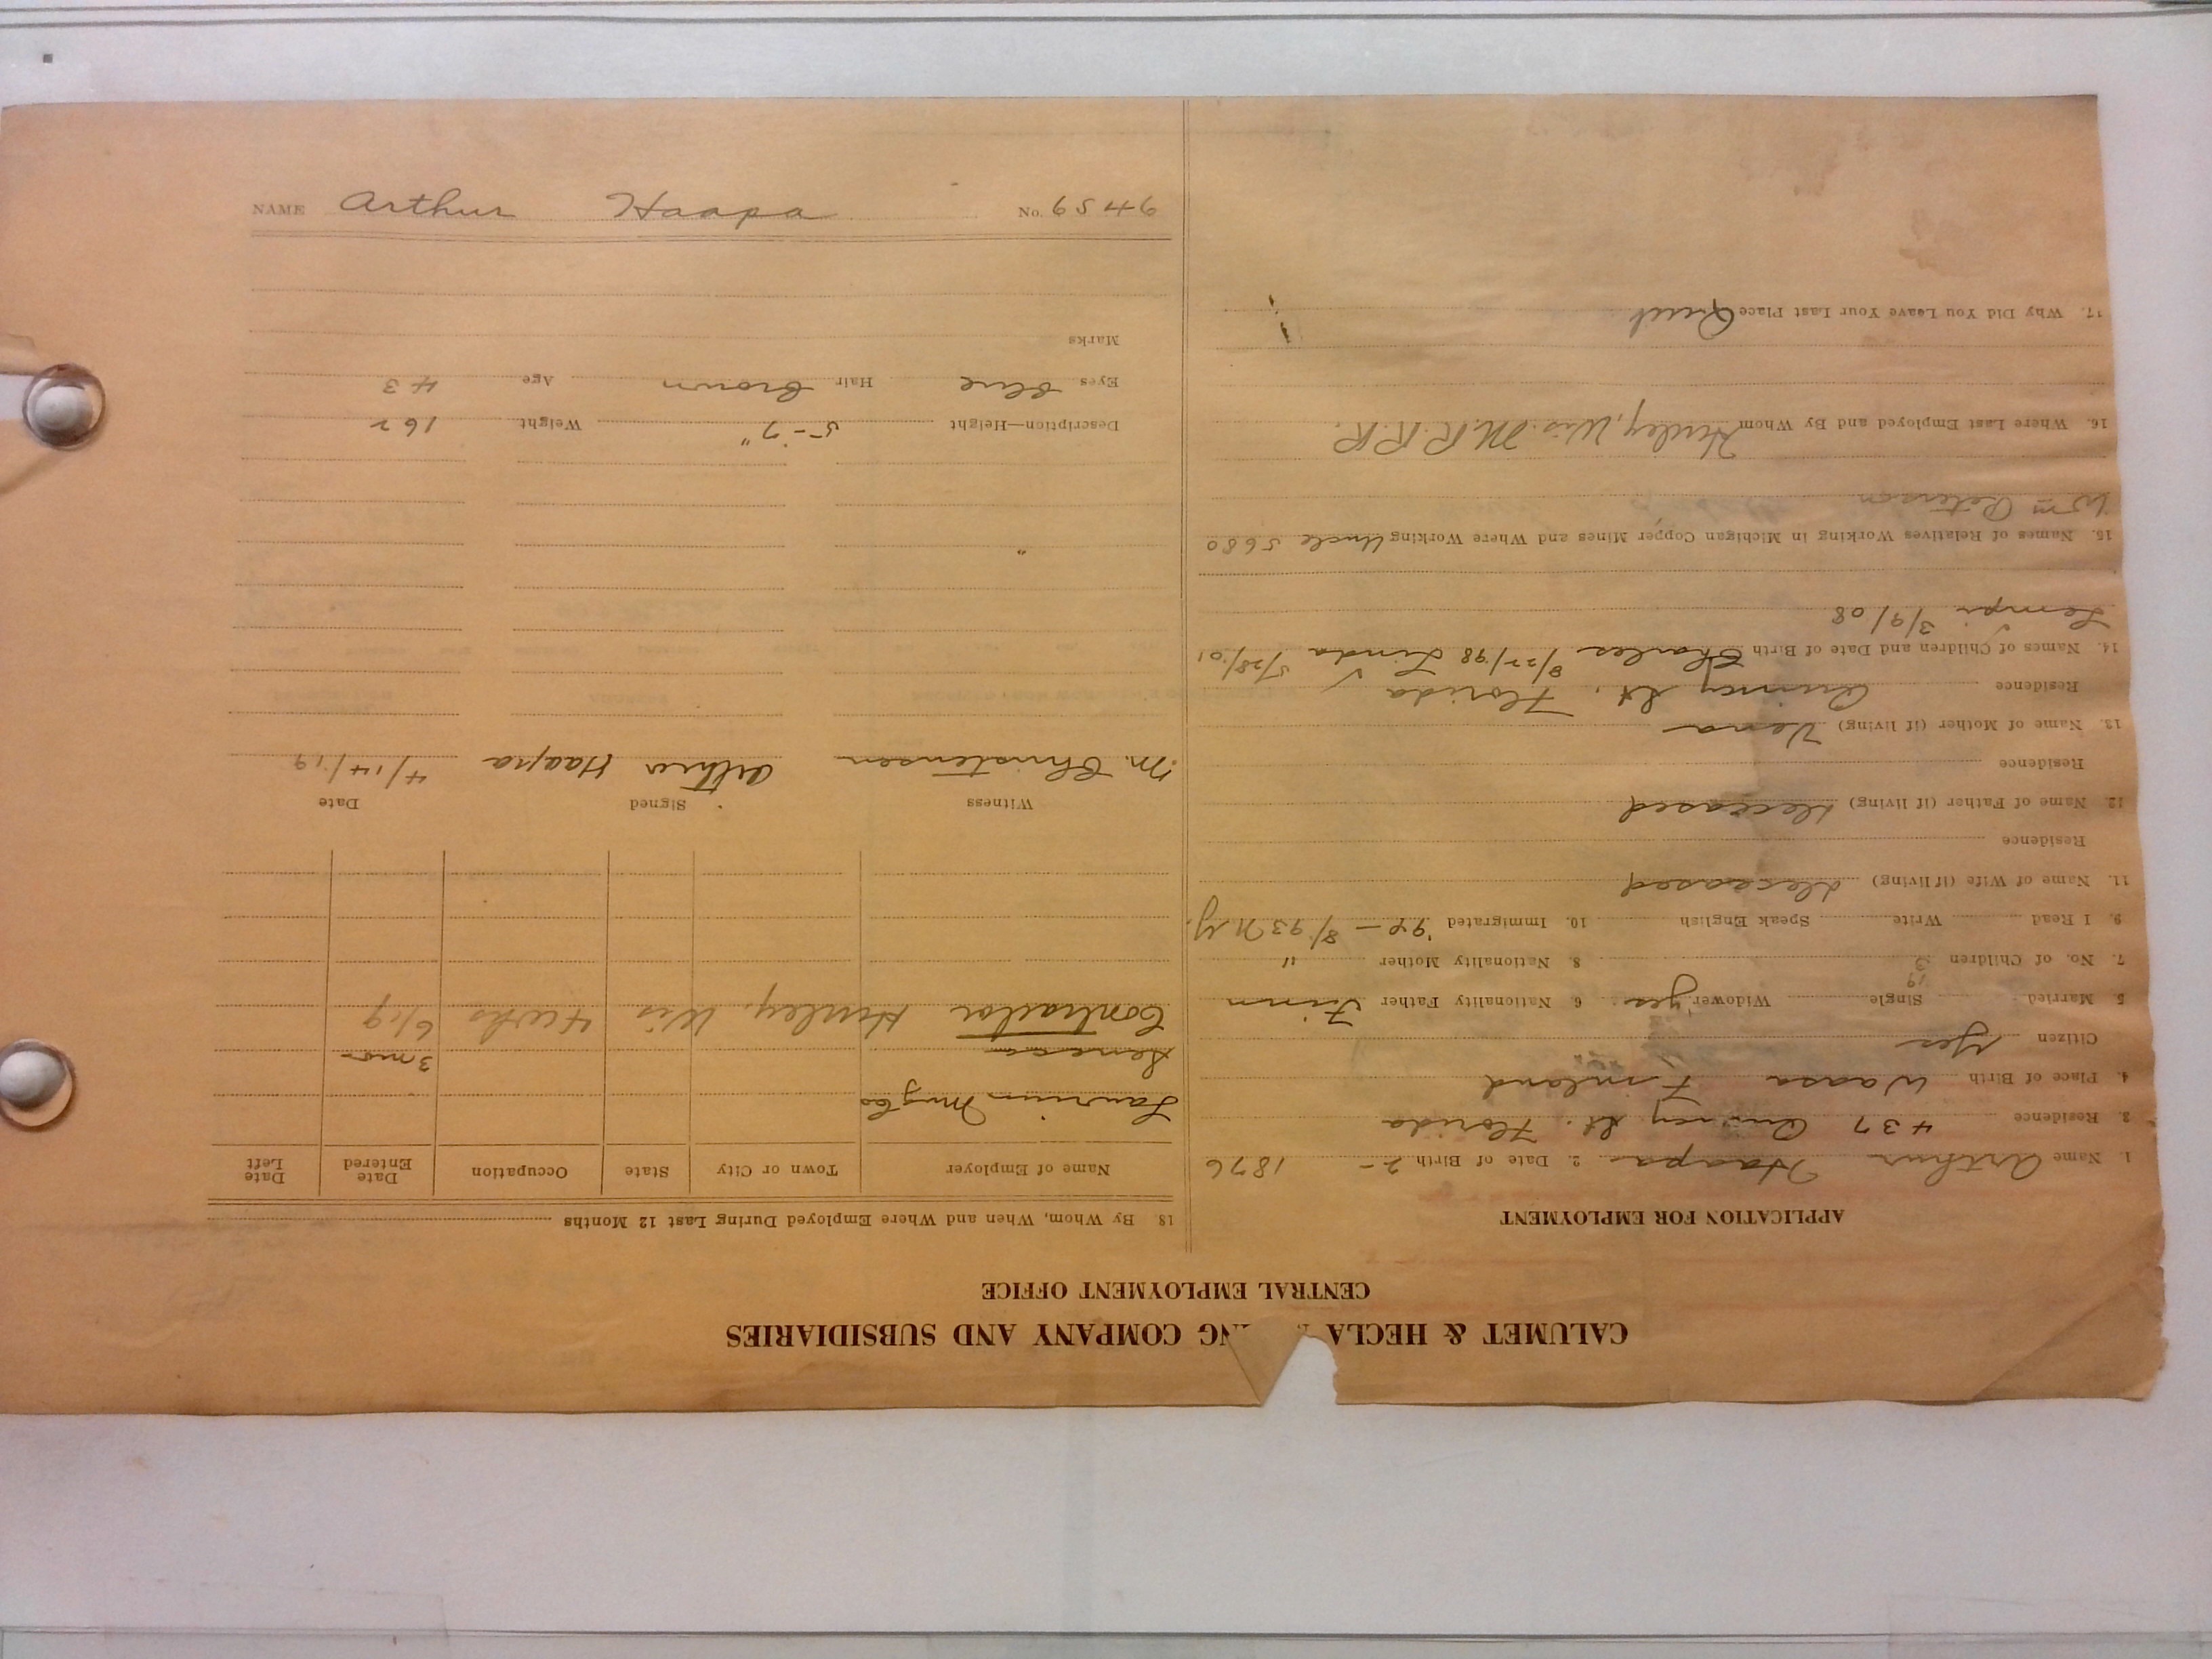 CALUMET & HECLA NG COMPANY AND SUBSIDIARIES
CENTRAL EMPLOYMENT OFFICE
APPLICATION FOR EMPLOYMENT
1. Name Arthur Haapa 2. Date of Birth 2- 1876
3. Residence 437 Quincy St. Florida
4. Place of Birth Waasa Finland
Citizen Yes
5. Married Single Widower yes 6. Nationality Father Finn
19
7. No. of Children 3 8. Nationality Mother "
9. I Read Write Speak English 10. Immigrated '92 - 8/93 N.Y.
11. Name of Wife (if living) deceased
Residence
12. Name of Father (if living) deceased
Residence
13. Name of Mother (if living)
Residence Quincy St. Florida
14. Names of Children and Date of Birth Charles 8/22/98 Linda 5/28/01
Lempi 3/9/08
15. Names of Relatives Working in Michigan Copper Mines and Where Working Uncle 5680
Wm Peterson
16. Where Last Employed and By Whom Hurley, Wis. M.R.R.R.
17. Why Did You Leave Your Last Place Quit
18. By Whom, When and Where Employed During Last 12 Months
Name of Employer Town or City State Occupation Date Entered Date Left
Laurium Mng Co
Seneca 3 mo-
Contractor Hurley, Wis 4 wks 6/19
Witness Signed Date
M. Christensen Arthur Haapa 4/14/19
Description—Height 5-7" Weight 162
Eyes blue Hair brown Age 43
Marks
NAME Arthur Haapa No. 65449